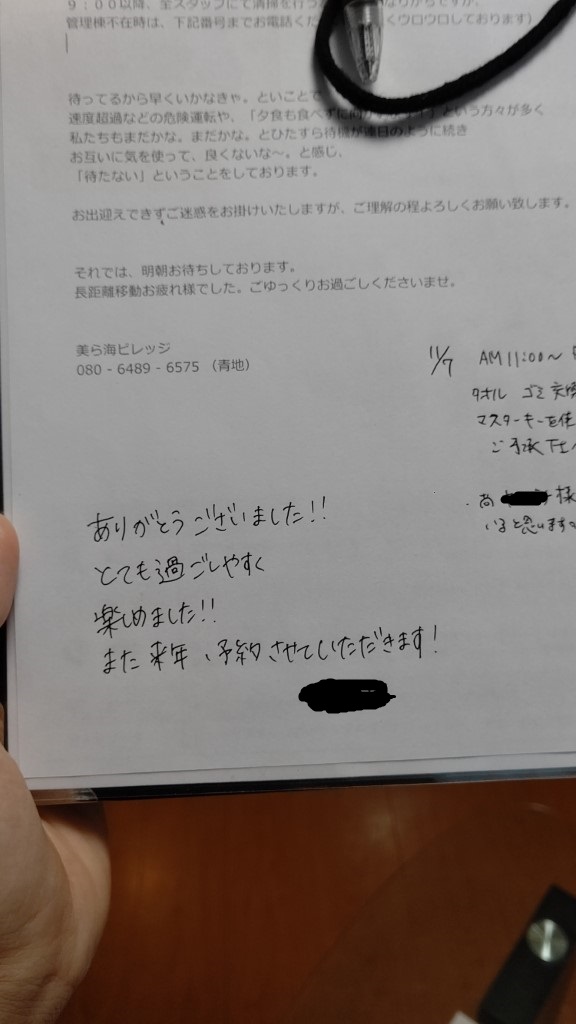 9：00以降、全スタッフにて清掃を行う
管理棟不在時は、下記番号までお電話くだ くウロウロしております）
待ってるから早くいかなきゃ。といことで
速度超過などの危険運転や、「夕食も食べずに という方々が多く
私たちもまだかな。まだかな。とひたすら待機が連日のように続き
お互いに気を使って、良くないな～。と感じ、
「待たない」ということをしております。
お出迎えできずご迷惑をお掛けいたしますが、ご理解の程よろしくお願い致します。
それでは、明朝お待ちしております。
長距離移動お疲れ様でした。ごゆっくりお過ごしくださいませ。
美ら海ビレッジ
080 - 6489 - 6575 （青地）
11/7 AM 11:00～
タオル ゴミ交換
マスターキーを使
ご了承下
尚 様
いると思います
ありがとうございました!!
とても過ごしやすく
楽しめました!!
また来年、予約させていただきます!